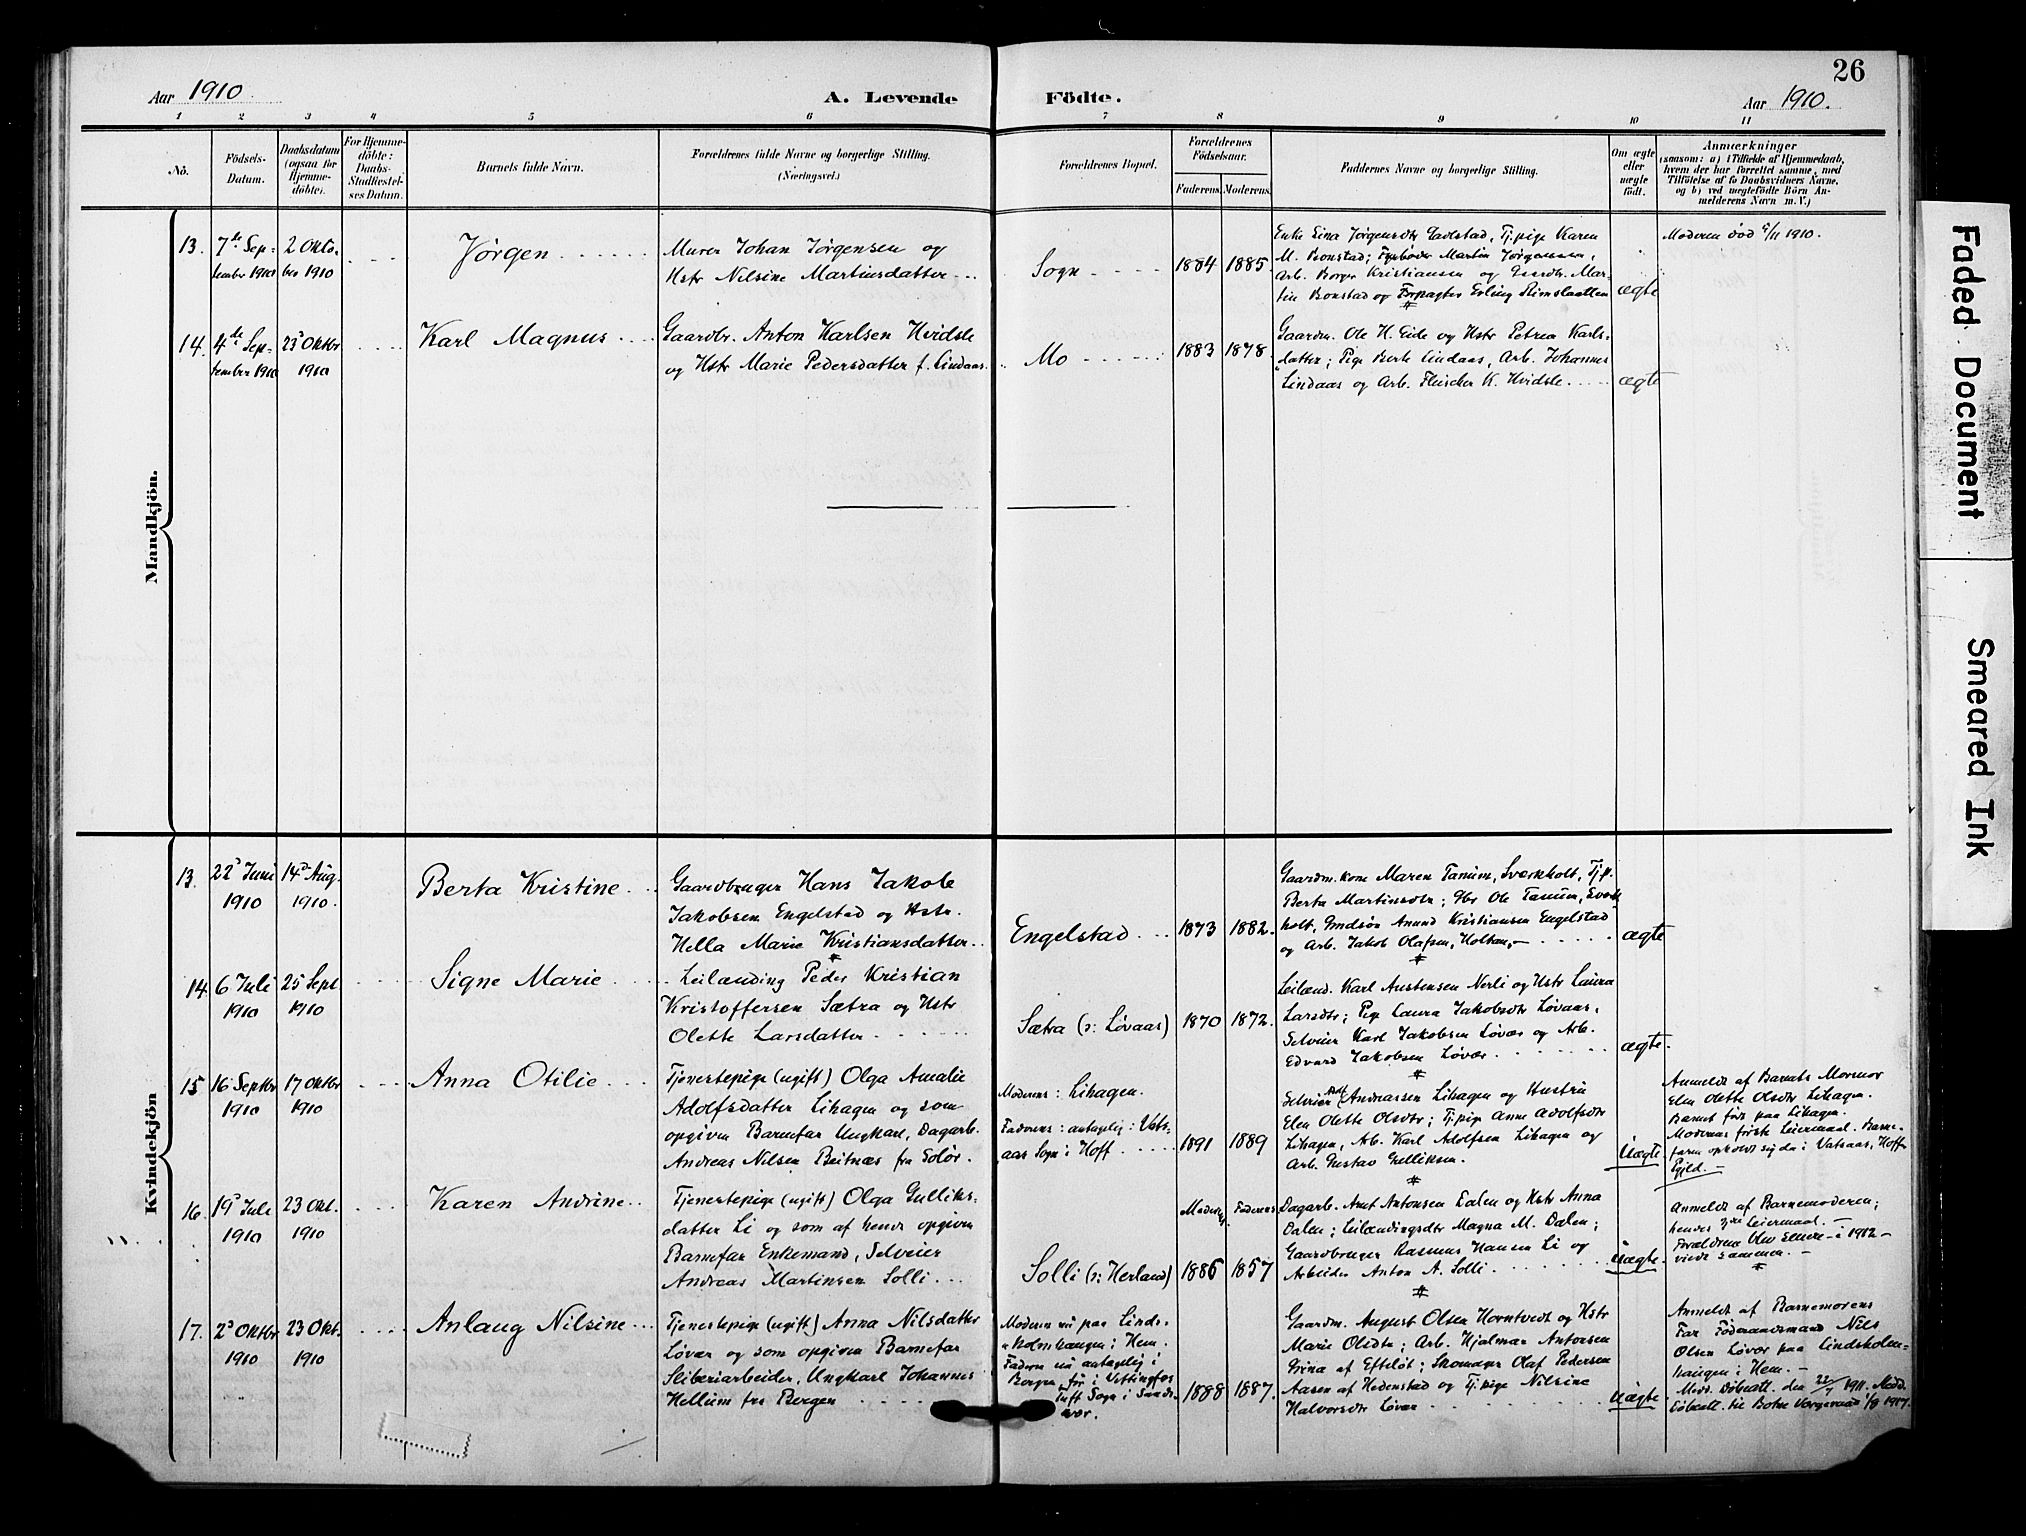 26
Aar 1910.
A. Levende Födte.
Aar 1910.
1 2 3 4 5 6 7 8 9 10 11
No.
Födsels-
Datum.
Daabsdatum
(ogsaa for
Hjemme-
döbte).
For Hjemme-
döbte:
Daabs-
Stadfæstel-
ses Datum.
Barnets fulde Navn.
Forældrenes fulde Navne og borgerlige Stilling.
(Næringsvei.)
Forældrenes Bopæl.
Forældrenes
Födselsaar.
Faderens. Moderens.
Faddernes Navne og borgerlige Stilling.
Om ægte
eller
uægte
født.
Anmærkninger
(saasom: a) i Tilfælde af Hjemmedaab,
hvem der har forrettet samme, med
Tilföielse af to Daabsvidners Navne,
og b) ved uægtefödte Börn An-
melderens Navn m. V.)
Mandkjön.
13.
7de Sep-
tember 1910
2 Okto-
ber 1910
Jørgen
Murer Johan Jørgensen og
Hstr Nilsine Martinsdatter
Sogn
1884 1885.
Enke Lina Jørgensdtr Gadstad, Tj.pige Karen
M. Bonstad; Fyrbøder Martin Jørgensen,
Arb. Borger Kristiansen og Gaardbr. Mar-
tin Bonstad og Forpagter Erling Rimslaatten
ægte
Moderen død 9/11 1910.
14.
4de Sep-
tember 1910
23d Oktbr
1910
Karl Magnus
Gaardbr. Anton Karlsen Hvidsle
og Hstr Marie Pedersdatter f. Lindaas
Mo
1883 1878.
Gaardm. Ole H. Eide og Hstr Petrea Karls-
datter; Pige Berte Lindaas, Arb. Johannes
Lindaas og Arb. Fleischer K. Hvidsle.
ægte
Kvindekjön
13.
22d Juni
1910
14d Aug.
1910.
Berta Kristine
Gaardbruger Hans Jakob
Jakobsen Engelstad og Hstr.
Hella Marie Kristiansdatter
Engelstad
1873 1882.
Gaardm. kone Maren Tanum, Sværkholt, Tj.p.
Berta Martinsdtr; Gbr Ole Tanum, Sværk-
holt, Gmdsøn Anund Kristiansen Engelstad
og Arb. Jakob Olafsen, Holtan,
ægte
14
6 Juli
1910
25 Sept
1910
Signe Marie
Leilænding Peder Kristian
Kristoffersen Sætra og Hstr
Olette Larsdatter
Sætra (ɔ: Løvaas)
1870 1872.
Leilænd. Karl Austensen Nerli og Hstr Laura
Larsdtr; Pige Laura Jakobsdtr Løvaas,
Selveier Karl Jakobsen Løvær og Arb.
Edvard Jakobsen Løvær.
ægte.
15
16 Septbr
1910
17 Oktbr
1910
Anna Otilie
Tjenestepige (ugift) Olga Amalie
Adolfsdatter Lihagen og som
opgiven Barnefar Ungkarl, Dagarb.
Andreas Nilsen Beitnæs fra Solør.
Moderens: Lihagen.
Faderens: antagelig: Vats-
aas Sogn i Hoff.
1891 1889
Selveier Adolf Andreassen Lihagen og Hustru
Elen Olette Olsdtr; Tj.pige Anne Adolfsdtr
Lihagen, Arb. Karl Adolfsen Lihagen og
Arb. Gustav Gulliksen.
Uægte
Anmeldt af Barnets Mormor
Elen Olette Olsdtr Lihagen.
Barnet født paa Lihagen.
Moderens første Leiermaal. Barne-
faren opholdt sig da i Vatsaas, Hoff
Pgjld.
16.
19d Juli
1910
23 Okt.
1910
Karen Andrine
Tjenestepige (ugift) Olga Gulliks-
datter Li og som af hende opgiven
Barnefar Enkemand, Selveier
Andreas Martinsen Solli.
Solli (ɔ: Herland)
Moderens Faderens
1886 1857
Dagarb. Amt Antonsen Dalen og Hstr Anna
Dalen; Leilendingsdtr Magna M. Dalen;
Gaardbruger Rasmus Hansen Li og
Arbeider Anton A. Solli.
Uægte.
Anmeldt af Barnemoderen;
hendes 3die Leiermaal.
Forældrene blev senere i 1912
viede sammen.
17.
2d Oktbr
1910
23 Okt.
1910
Anlaug Nilsine
Tjenestepige (ugift) Anna Nilsdatter
Løvær og som opgiven Barnefar
Sliberiarbeider, Ungkarl Johannes
Hellum fra Bergen
Moderen nu paa Linds-
holmhaugen i Hem.
Faderen nu antagelig i
Bergen, før i Vittingfos
Tuft Sogn i Sands-
vær.
1888 1887.
Gaardm. August Olsen Horntvedt og Hstr
Marie Olsdtr; Arb. Hjalmar Antonsen
Grina af Efteløt; Skomager Olaf Pedersen
Aasen af Hedenstad og Tj.pige Nilsine
Halvorsdtr Løvær
Uægte
Anmeldt af Barnemorens
Far Føderaadsmand Nils
Olsen Løvær paa Lindsholm-
haugen i Hem.
Medd. Døbeatt. den 22/7 1911. Medd.
Døbeatt. til Botne Vergeraad 1/9 1917.
Faded Document
Smeared Ink